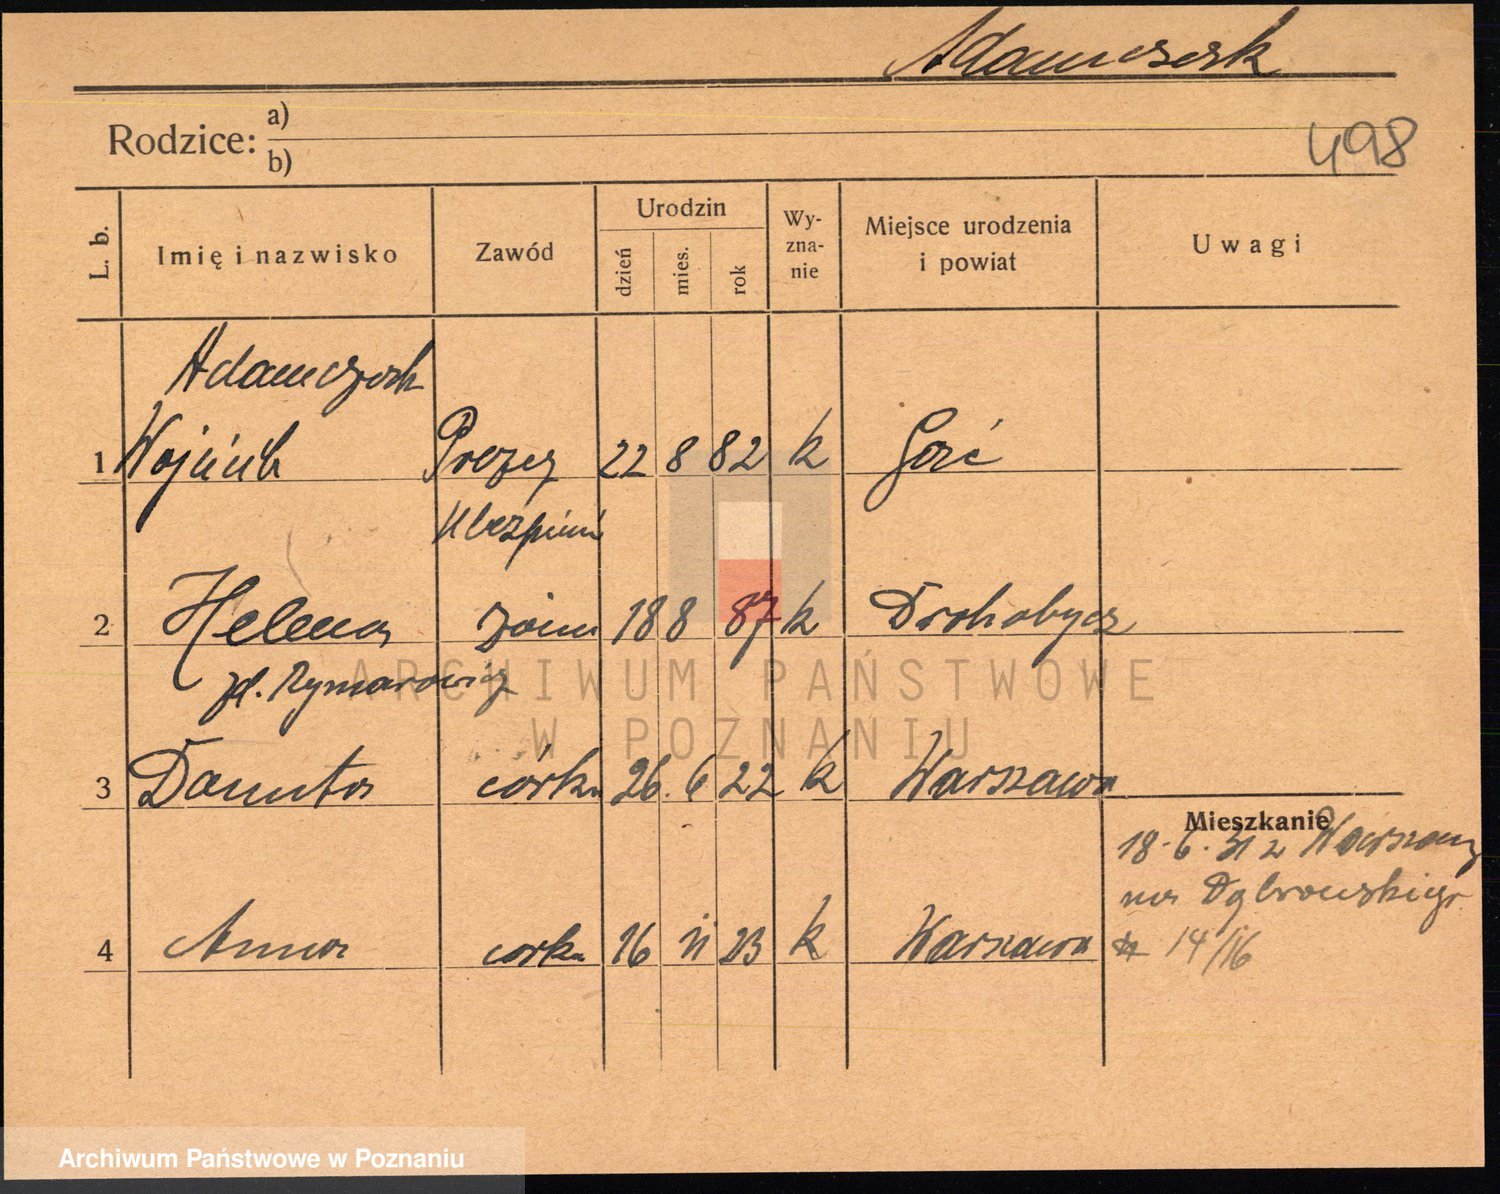 Adamczak
Rodzice: a)
b)
498
L. b. Imię i nazwisko Zawód Urodzin dzień mies. rok Wy-zna-nie Miejsce urodzenia i powiat Uwagi
Adamczak
1 Wojciech Prezes 22 8 82 k
Ubezpiecz
2 Helena żona 18 8 87 k Drohobycz
zd. Rymarowicz
3 Danuta córka 26. 6 22 k Warszawa
Mieszkanie
18. 6. 31 z Warszawy
na Dąbrowskiego
4 Anna corka 16 11 23 k Warszawa 14/16
ARCHIWUM PAŃSTWOWE
W POZNANIU
Archiwum Państwowe w Poznaniu